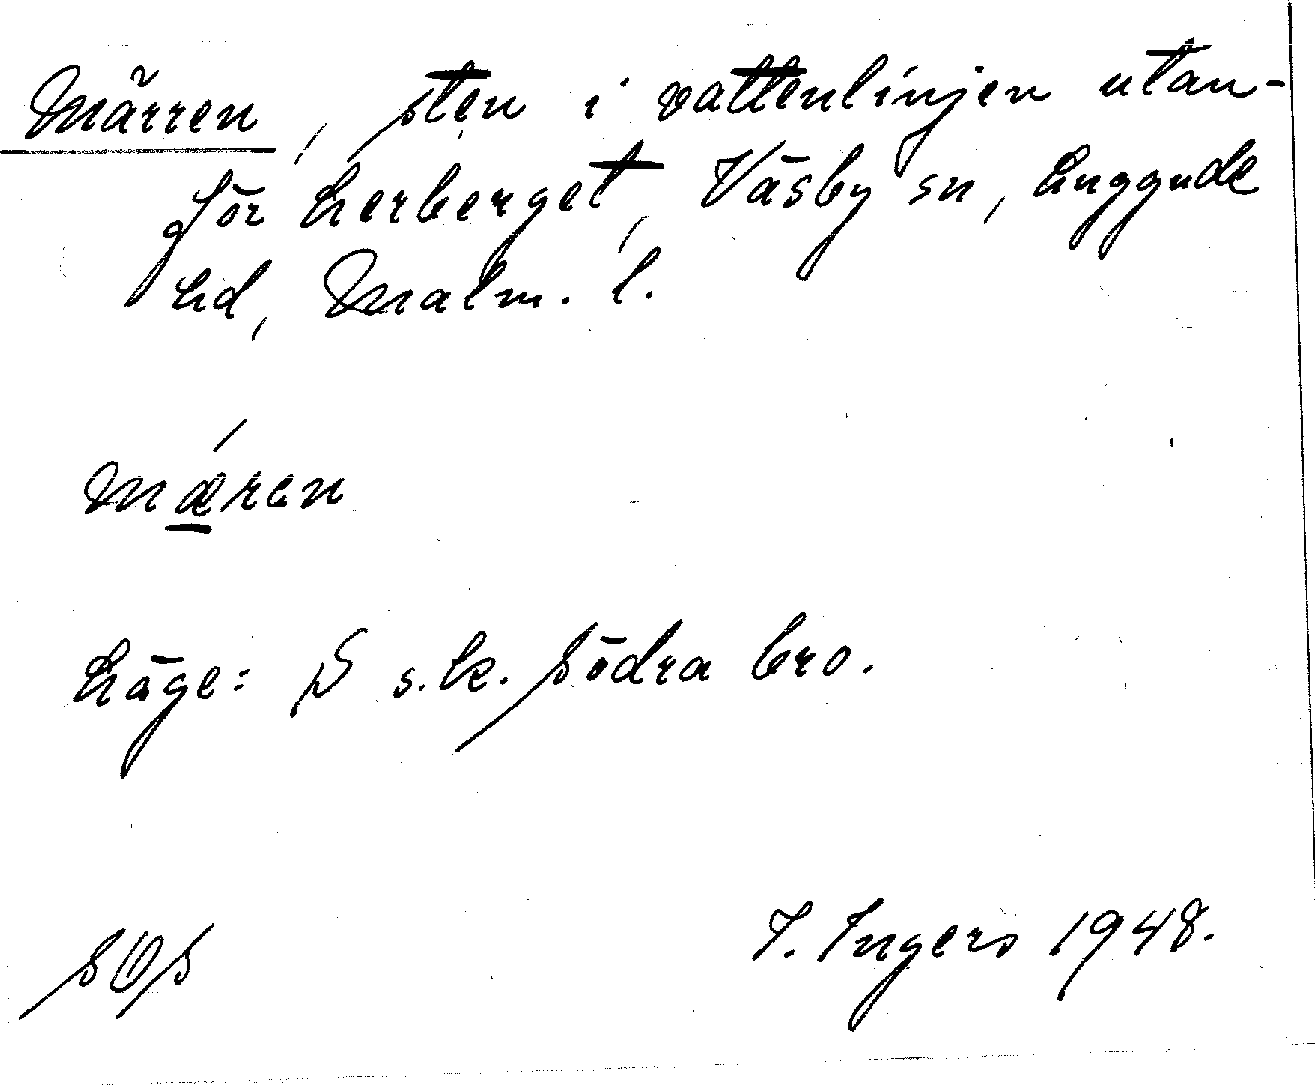 Märren, sten i vattenlinjen utan-
för Lerberget, Väsby sn, Luggude
hd, Malm. l.
mǽren
Läge: S s.k. Södra bro.
SOS
I. Ingers 1948.